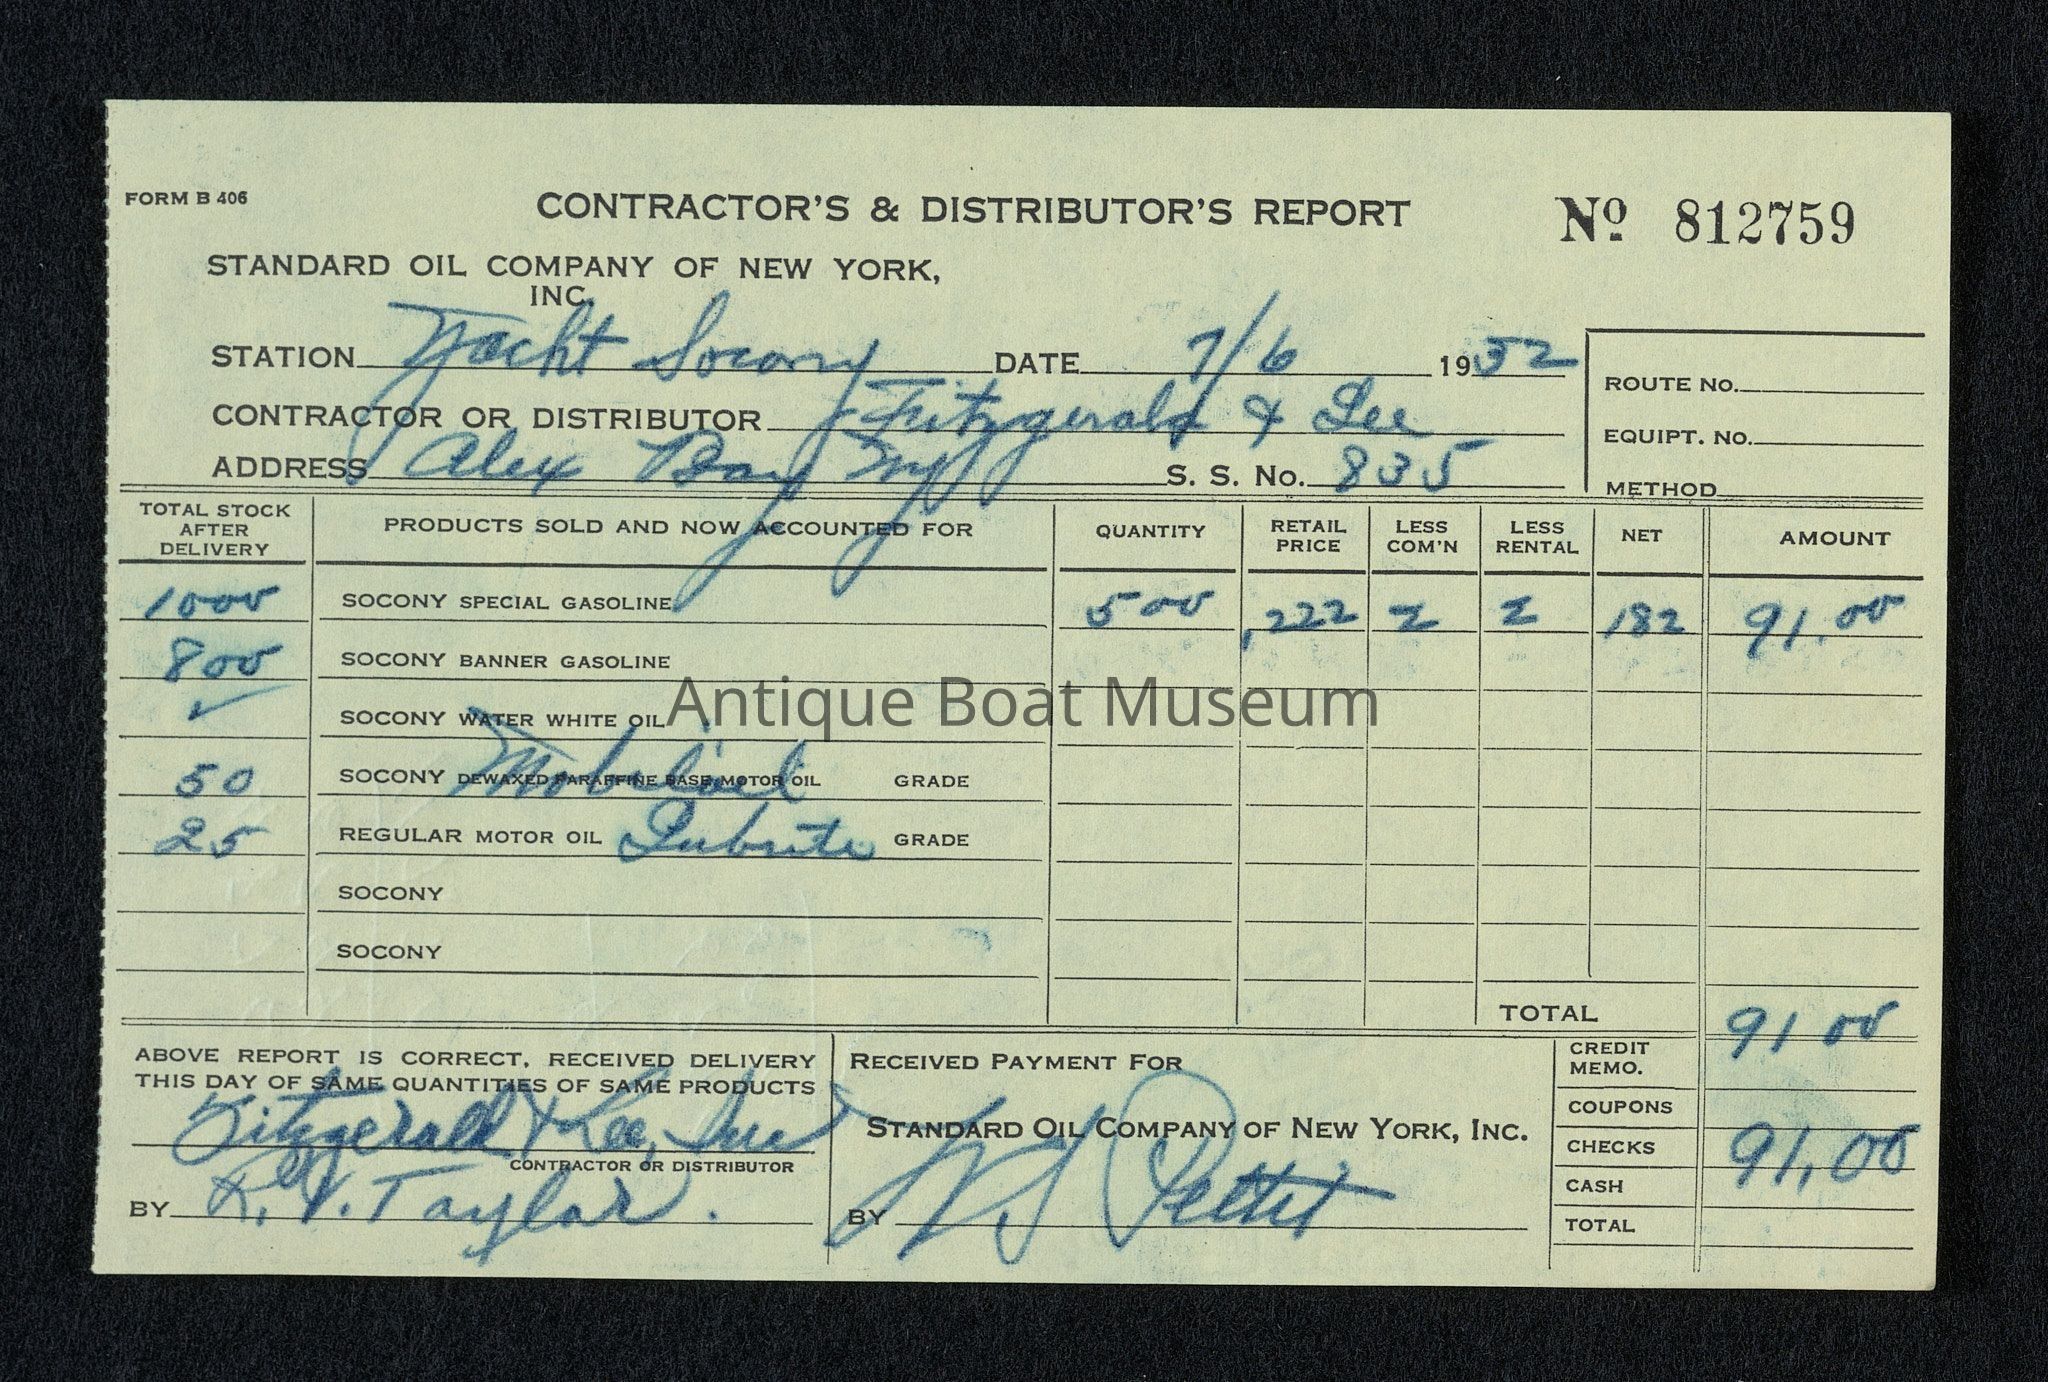 FORM B 406
CONTRACTOR'S & DISTRIBUTOR'S REPORT
Nº 812759
STANDARD OIL COMPANY OF NEW YORK,
INC.
STATION Yacht Socony DATE 7/6 1932
CONTRACTOR OR DISTRIBUTOR Fitzgerald & Lee
ADDRESS Alex Bay NY S. S. No. 835
ROUTE NO.
EQUIPT. NO.
METHOD
TOTAL STOCK AFTER DELIVERY PRODUCTS SOLD AND NOW ACCOUNTED FOR QUANTITY RETAIL PRICE LESS COM'N LESS RENTAL NET AMOUNT
1000 SOCONY SPECIAL GASOLINE 500 .222 2 2 182 91.00
800 SOCONY BANNER GASOLINE
✓ SOCONY WATER WHITE OIL
Antique Boat Museum
50 SOCONY DEWAXED PARAFFINE BASE MOTOR OIL Mobiloil GRADE
25 REGULAR MOTOR OIL Lubrite GRADE
SOCONY
SOCONY
TOTAL 91 00
ABOVE REPORT IS CORRECT, RECEIVED DELIVERY
THIS DAY OF SAME QUANTITIES OF SAME PRODUCTS
Fitzgerald & Lee, Inc
CONTRACTOR OR DISTRIBUTOR
BY R. V. Taylor.
RECEIVED PAYMENT FOR
STANDARD OIL COMPANY OF NEW YORK, INC.
BY Pettit
CREDIT MEMO.
COUPONS
CHECKS 91.00
CASH
TOTAL